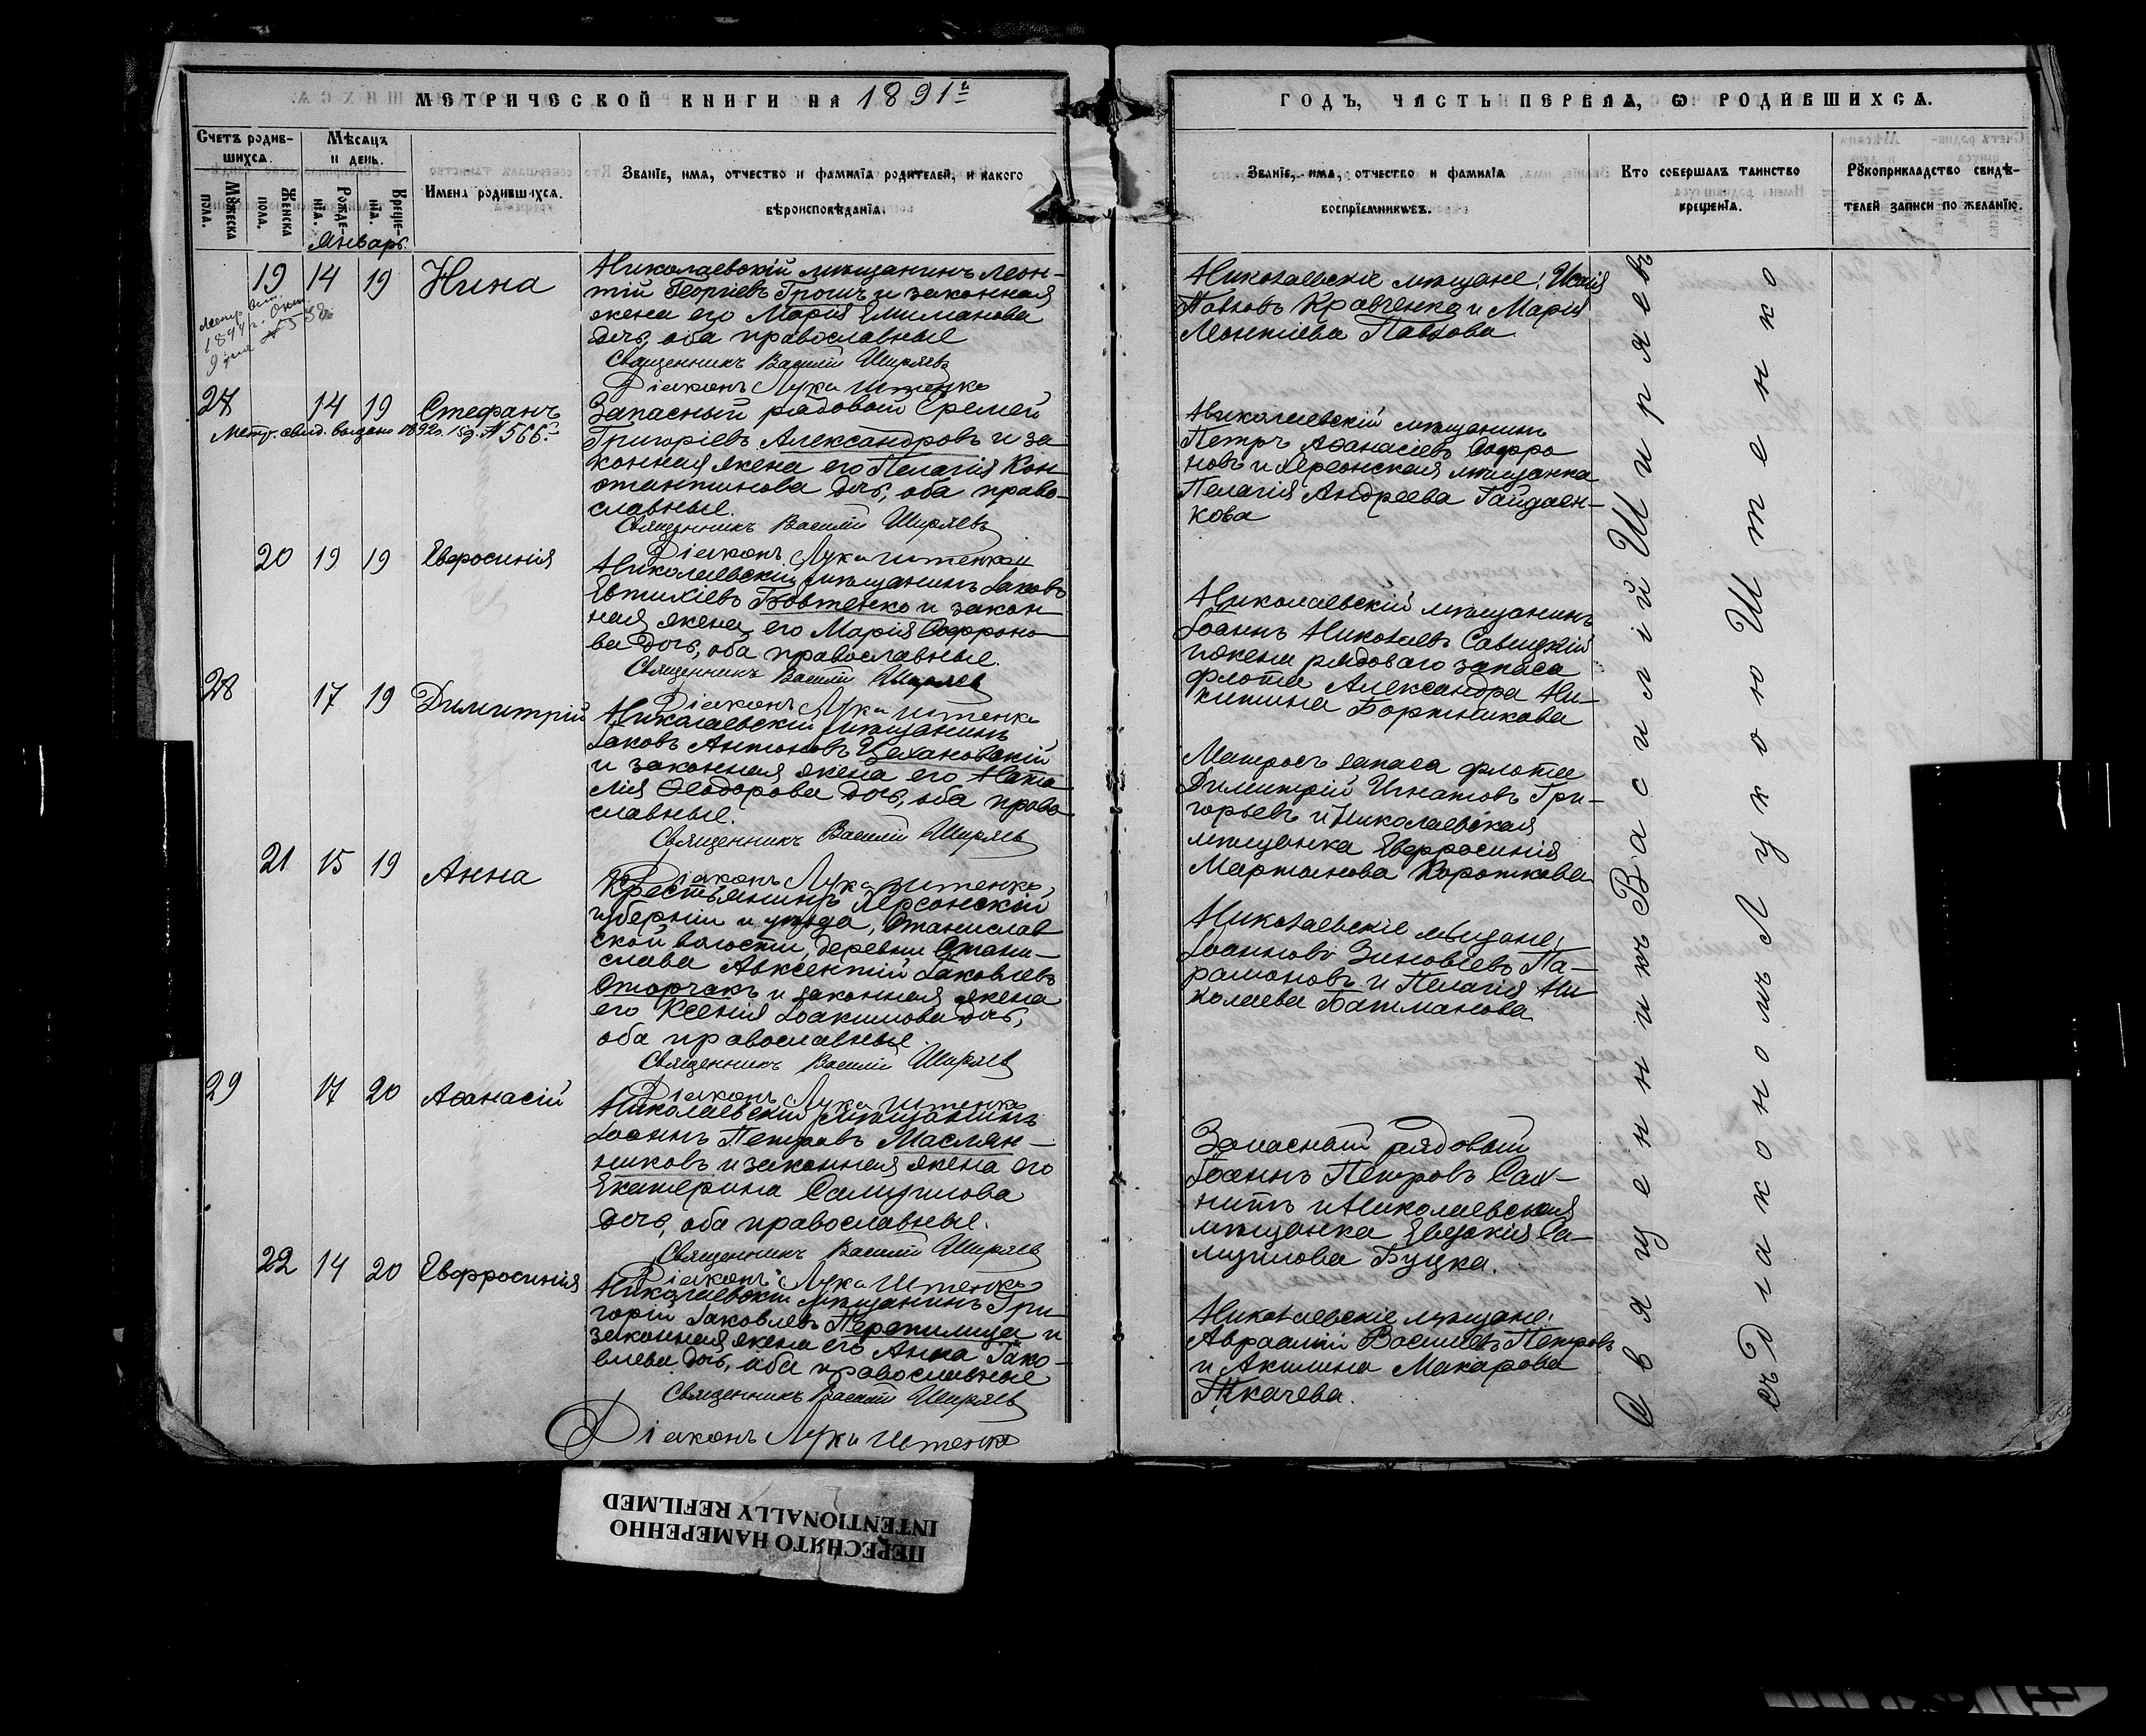 МЕТРИЧЕСКОЙ КНИГИ НА 1891й
Счетъ родившихся.
Мѣсяцъ и день.
Мꙋжеска пола.
Женска пола.
Рожденїа.
Крещенїа.
Имена родившихся.
Званїе, имя, отчество и фамилїа родителей, и какого
вѣроисповѣданїа.
Январь.
19 14 19 Нина
Николаевскій мѣщанинъ Леон-
тій Георгіевъ Грошъ и законная
жена его Марія Емилианова
дочь, оба православные
Священникъ Василій Ширяевъ
Діаконъ Лука Штенко
27 14 19 Стефанъ
Метр. свид. выдано 1892г. № 566.
Запасный рядовой Еремей
Григоріевъ Александровъ и за
конная жена его Пелагія Кон
стантинова дочь, оба право-
славные.
Священникъ Василій Ширяевъ
Діаконъ Лука Штенко
20 19 19 Евфросинія
Николаевскій мѣщанинъ Іаковъ
Евтихіевъ Бовтенко и закон
ная жена его Марія Софроно
ва дочь, оба православные.
Священникъ Василій Ширяевъ
Діаконъ Лука Штенко
28 17 19 Димитрій
Николаевскій мѣщанинъ
Іаковъ Антоновъ Цехановскій
и законная жена его Ната
лія Ѳеодорова дочь, оба право
славные.
Священникъ Василій Ширяевъ
Діаконъ Лука Штенко
21 15 19 Анна
Крестьянинъ Херсонской
губерніи и уѣзда, Станислав
ской волости, деревни Стани-
слава Авксентій Іаковлевъ
Сторчакъ и законная жена
его Ксенія Іоакимова дочь,
оба православные.
Священникъ Василій Ширяевъ
Діаконъ Лука Штенко
29 17 20 Аѳанасій
Николаевскій мѣщанинъ
Іоаннъ Петровъ Маслян-
никовъ и законная жена его
Екатерина Самуилова
дочь, оба православные.
Священникъ Василій Ширяевъ
Діаконъ Лука Штенко
22 14 20 Евфросинія
Николаевскій мѣщанинъ Гри-
горій Іаковлевъ Перепилица и
законная жена его Анна Іако-
влева дочь, оба православные
Священникъ Василій Ширяевъ
Діаконъ Лука Штенко
ГОДЪ, ЧАСТЬ ПЕРВАЯ, Ѡ РОДИВШИХСЯ.
Званїе, имя, отчество и фамилїа
воспрїемникѡвъ.
Кто совершалъ таинство
крещенїя.
Рꙋкоприкладство свидѣ-
телей записи по желанїю.
Николаевскіе мѣщане: Исаія
Павловъ Кравченко и Марія
Леонтіева Павлова
Николаевскій мѣщанинъ
Петръ Аѳанасіевъ Софро
новъ и Херсонская мѣщанка
Пелагія Андреева Гайдаен-
кова
Николаевскій мѣщанинъ
Іоаннъ Николаевъ Савицкій
и жена рядоваго запаса
флота Александра Ни-
китина Бортникова
Матросъ запаса флота
Димитрій Игнатовъ Гри-
горьевъ и Николаевская
мѣщанка Евфросинія
Мартинова Короткова
Николаевскіе мѣщане,
Іоанновъ Зиновіевъ Па-
рамоновъ и Пелагія Ни
колаева Батманова
Запасный рядовой
Іоаннъ Петровъ Сах-
нитъ и Николаевская
мѣщанка Евдокія Са-
муилова Буцка.
Николаевскіе мѣщане:
Авраамій Васильевъ Петровъ
и Акилина Макарова
Ткачева.
Священникъ Василій Ширяевъ
съ Діакономъ Лукою Штенко
ПЕРЕСНЯТО НАМЕРЕННО
INTENTIONALLY REFILMED